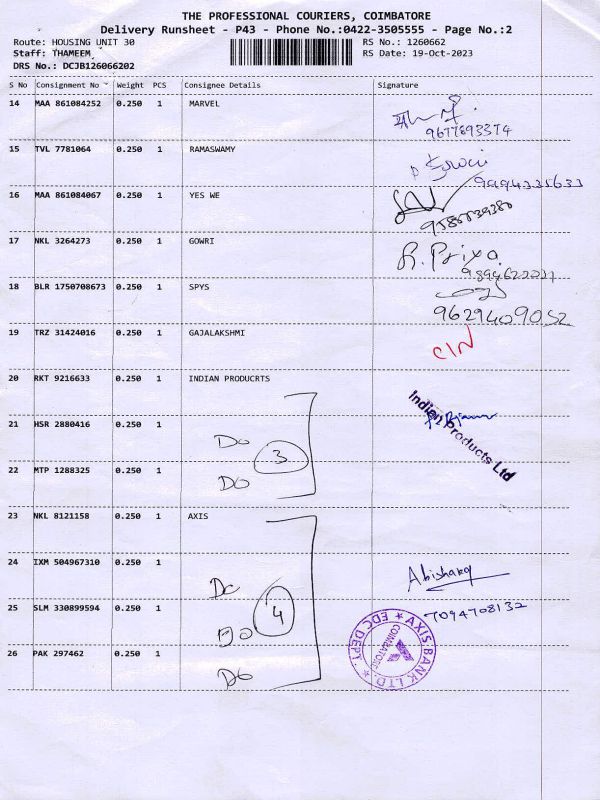 THE PROFESSIONAL COURIERS, COIMBATORE
Delivery Runsheet - P43 - Phone No.:0422-3505555 - Page No.:2
Route: HOUSING UNIT 30 RS No.: 1260662
Staff: THAMEEM RS Date: 19-Oct-2023
DRS No.: DCJB126066202
S No Consignment No Weight PCS Consignee Details Signature
14 MAA 861084252 0.250 1 MARVEL
9677893374
15 TVL 7781064 0.250 1 RAMASWAMY
9994335633
16 MAA 861084067 0.250 1 YES WE
17 NKL 3264273 0.250 1 GOWRI R. Priya
18 BLR 1750708673 0.250 1 SPYS
9629409052
19 TRZ 31424016 0.250 1 GAJALAKSHMI CIN
20 RKT 9216633 0.250 1 INDIAN PRODUCRTS
Indian Products Ltd
21 HSR 2880416 0.250 1
Do 3
22 MTP 1288325 0.250 1
Do
23 NKL 8121158 0.250 1 AXIS
24 IXM 504967310 0.250 1 Abishang
Do
25 SLM 330899594 0.250 1 4 7094708132
Do
26 PAK 297462 0.250 1
Do
AXIS BANK LTD. EDC DEPT. COIMBATORE